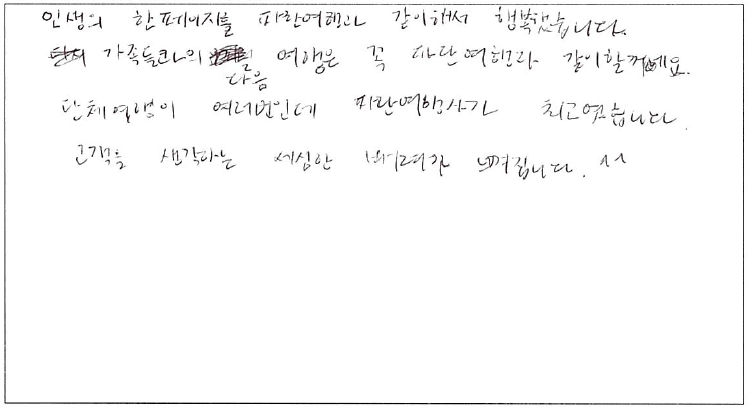 인생의 한페이지를 파란여행과 같이해서 행복했습니다.
가족들과의 다음 여행은 꼭 파란여행과 같이할꺼예요.
단체여행이 여러번인데 파란여행사가 최고였습니다.
고객을 생각하는 세심한 배려가 느껴집니다. ^^